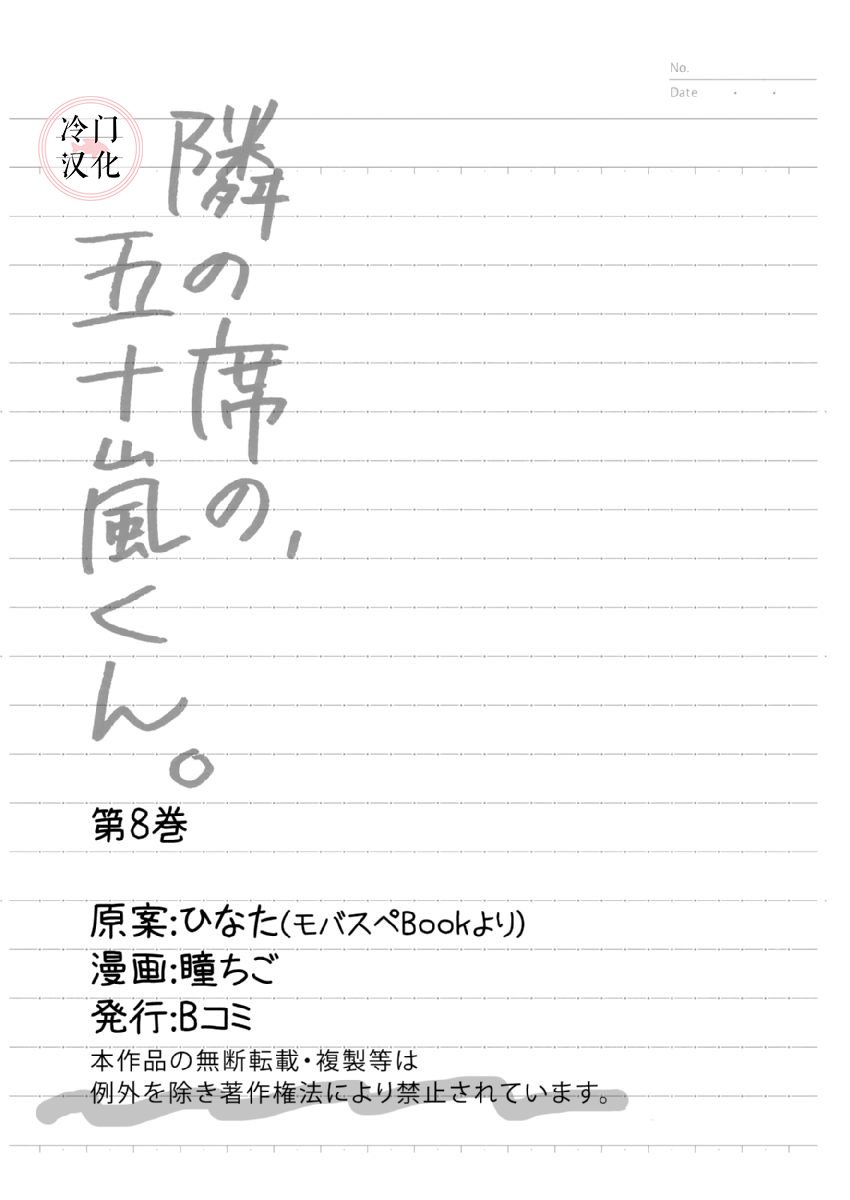 No.
Date
冷门
汉化
隣の席の、
五十嵐くん。
第8巻
原案:ひなた(モバスペBookより)
漫画:瞳ちご
発行:Bコミ
本作品の無断転載・複製等は
例外を除き著作権法により禁止されています。